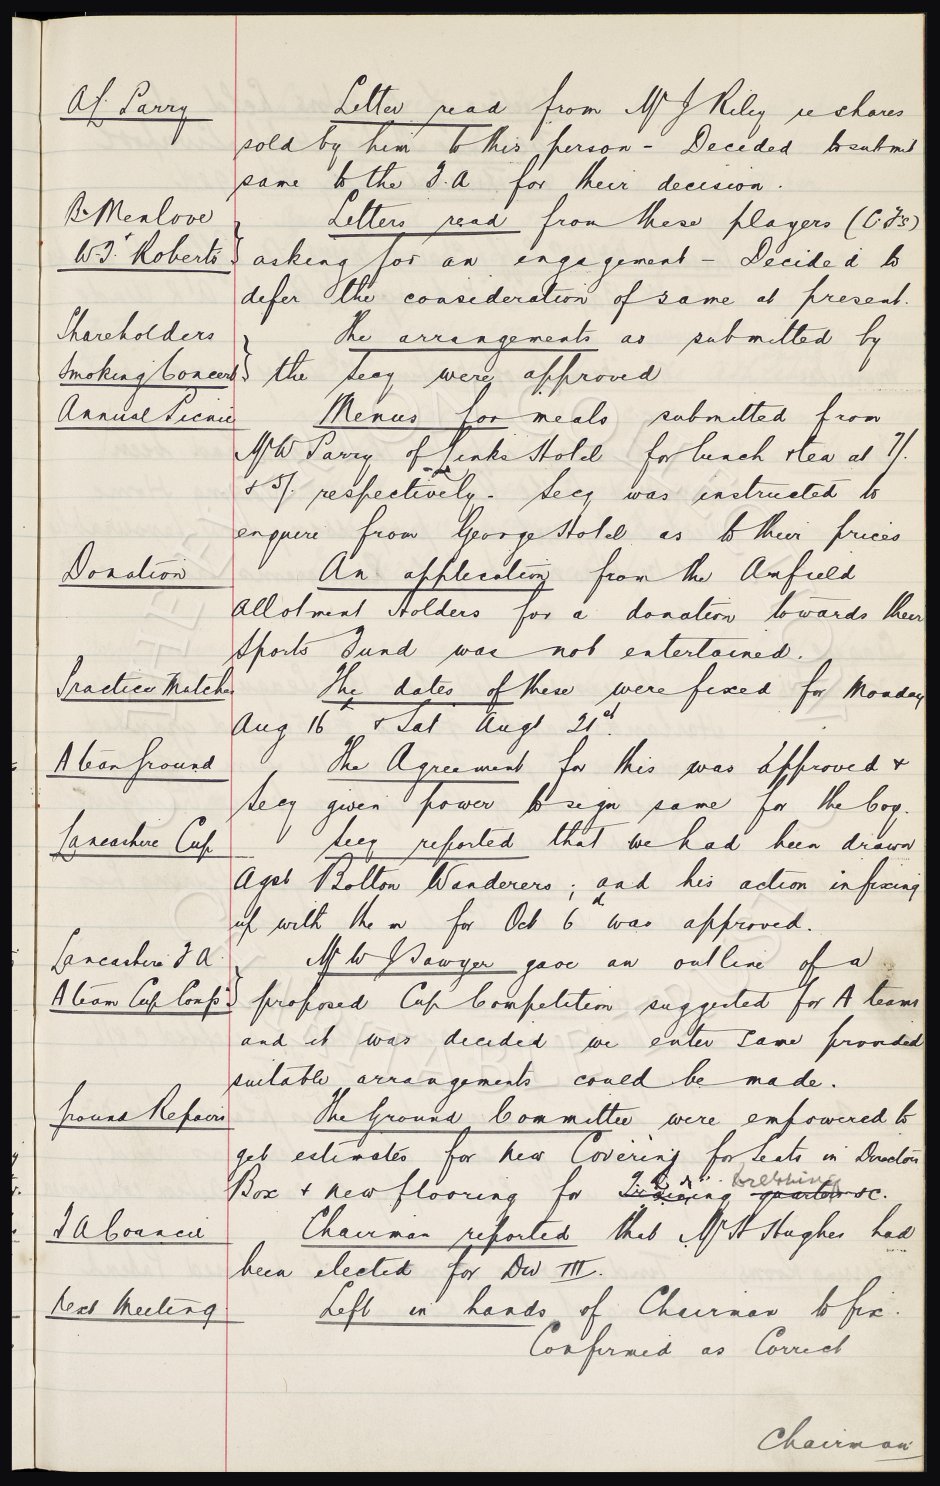 A.L. Parry Letter read from Mr J Riley re shares
sold by him to this person - Decided to submit
same to the F.A for their decision.
B. Menlove Letters read from these players (C.F's)
W.J. Roberts asking for an engagement - Decided to
defer the consideration of same at present.
Shareholders The arrangements as submitted by
Smoking Concert the Secy were approved
Annual Picnic Menus for meals submitted from
Mr W Parry of Links Hotel for lunch & tea at 7/-
& 5/- respectively. Secy was instructed to
enquire from George Hotel as to their prices
Donation An application from the Anfield
Allotment Holders for a donation towards their
Sports Fund was not entertained.
Practice Matches The dates of these were fixed for Monday
Aug 16 & Sat Augt 21st.
A team Ground The Agreement for this was approved &
Secy given power to sign same for the Coy.
Lancashire Cup Secy reported that we had been drawn
Agst Bolton Wanderers; and his action in fixing
up with them for Oct 6 was approved.
Lancashire F A Mr W J Sawyer gave an outline of a
A team Cup Compn proposed Cup Competition suggested for A teams
and it was decided we enter same provided
suitable arrangements could be made.
Ground Repairs The Ground Committee were empowered to
get estimates for new Covering for Seats in Directors
Box & new flooring for dressing quarters &c.
F A Council Chairman reported that Mr H Hughes had
been elected for Div III.
Next Meeting Left in hands of Chairman to fix.
Confirmed as Correct
Chairman